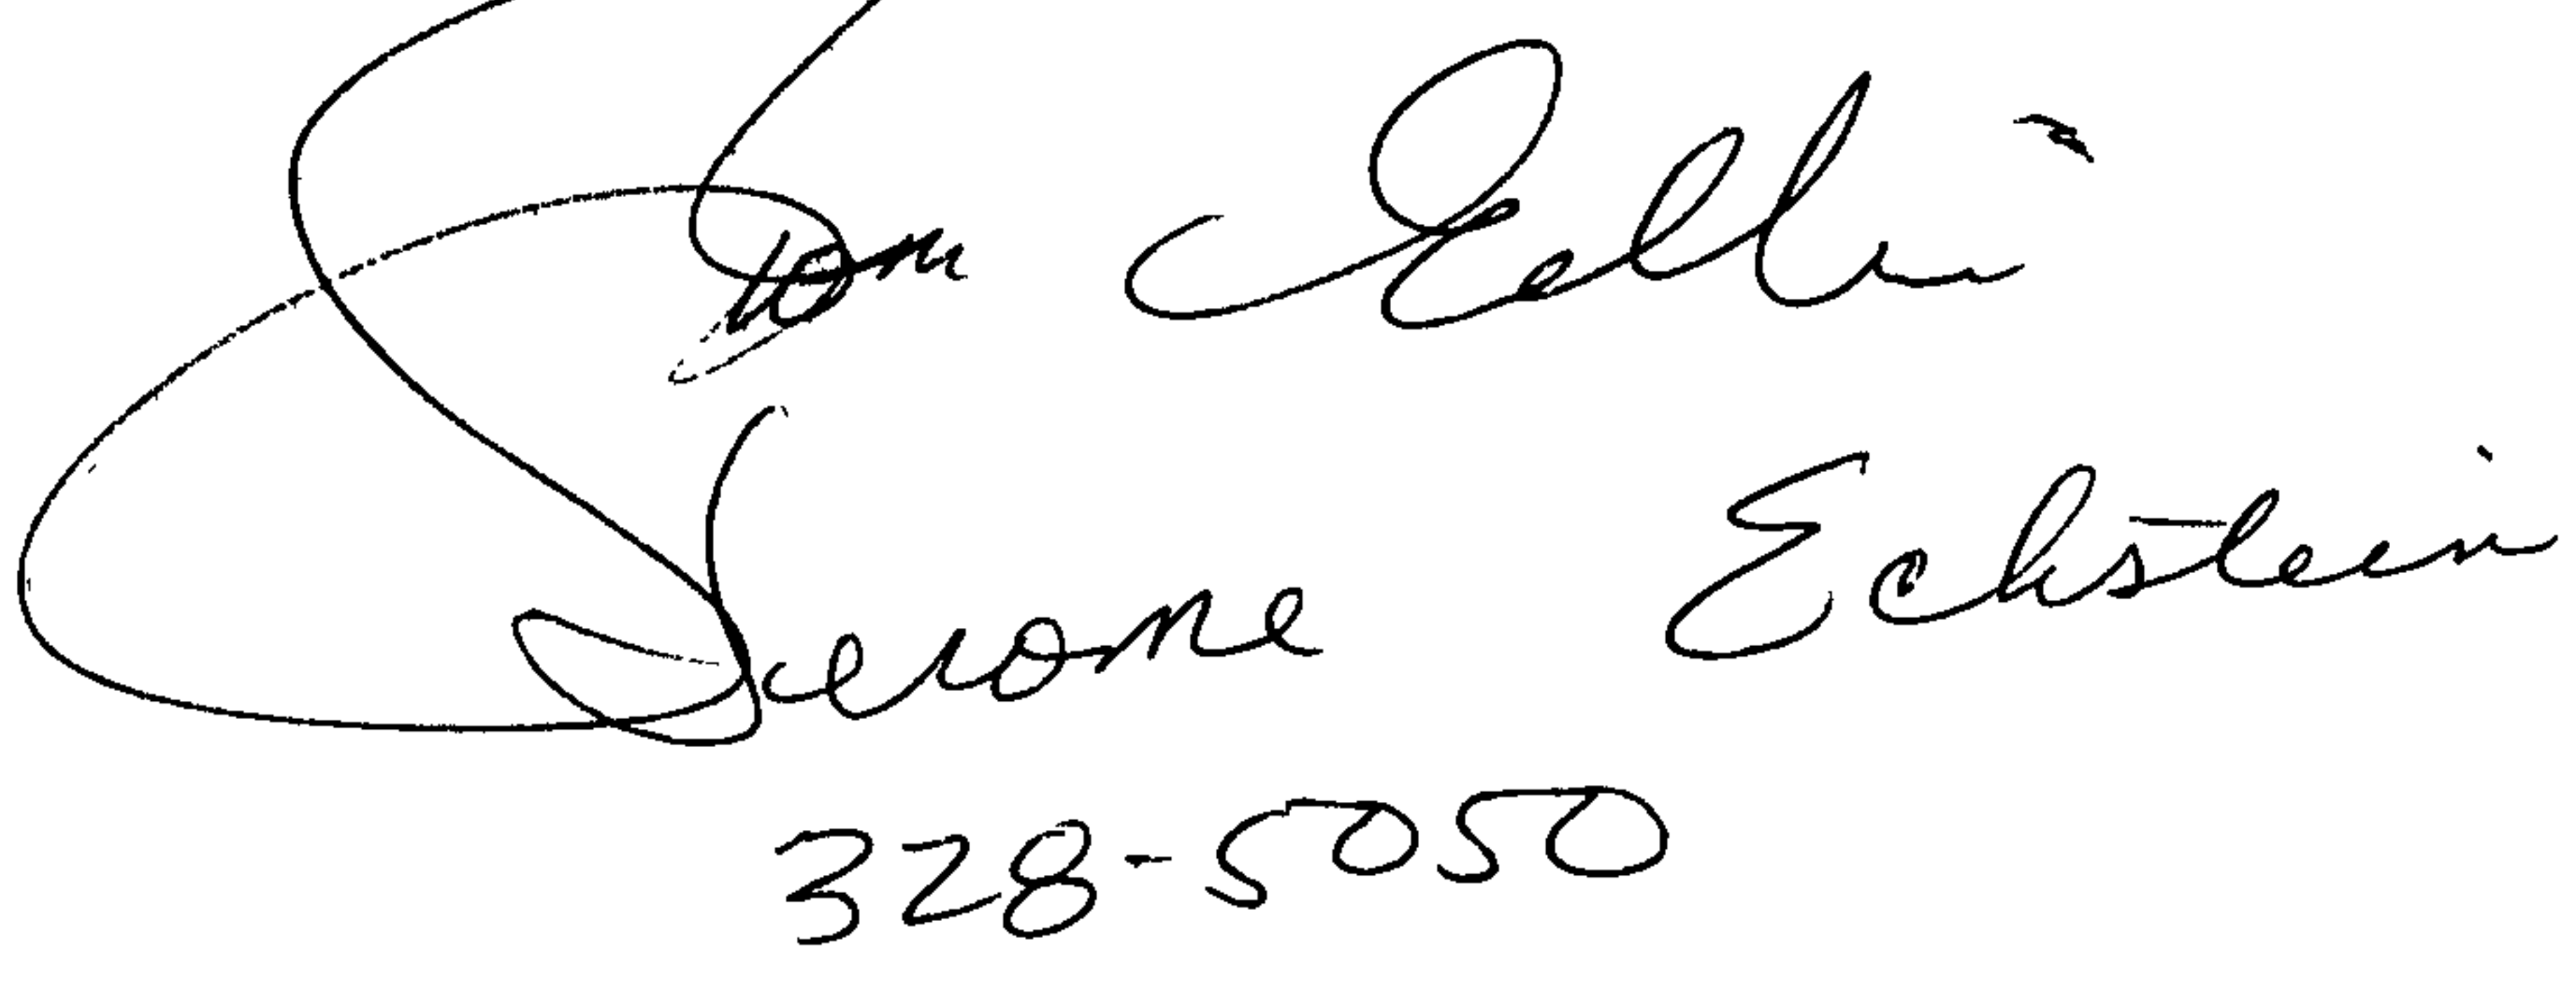 Tom
Jerome Eckstein
328-5050